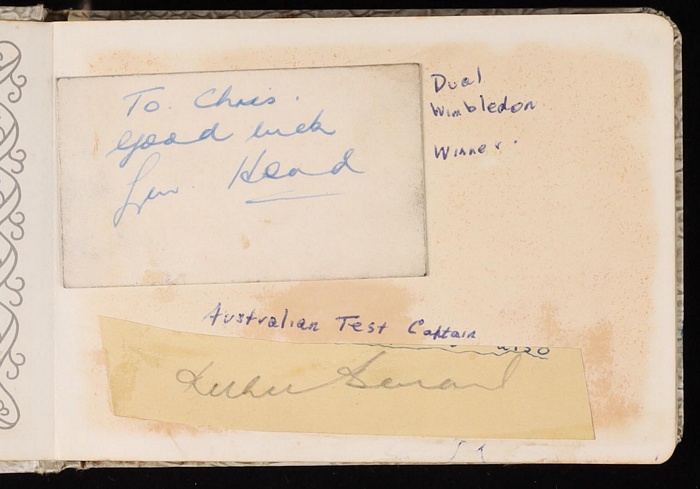 To. Chris.
Good luck
Lew Hoad
Dual
Wimbledon
Winner.
Australian Test Captain
Richie Benaud